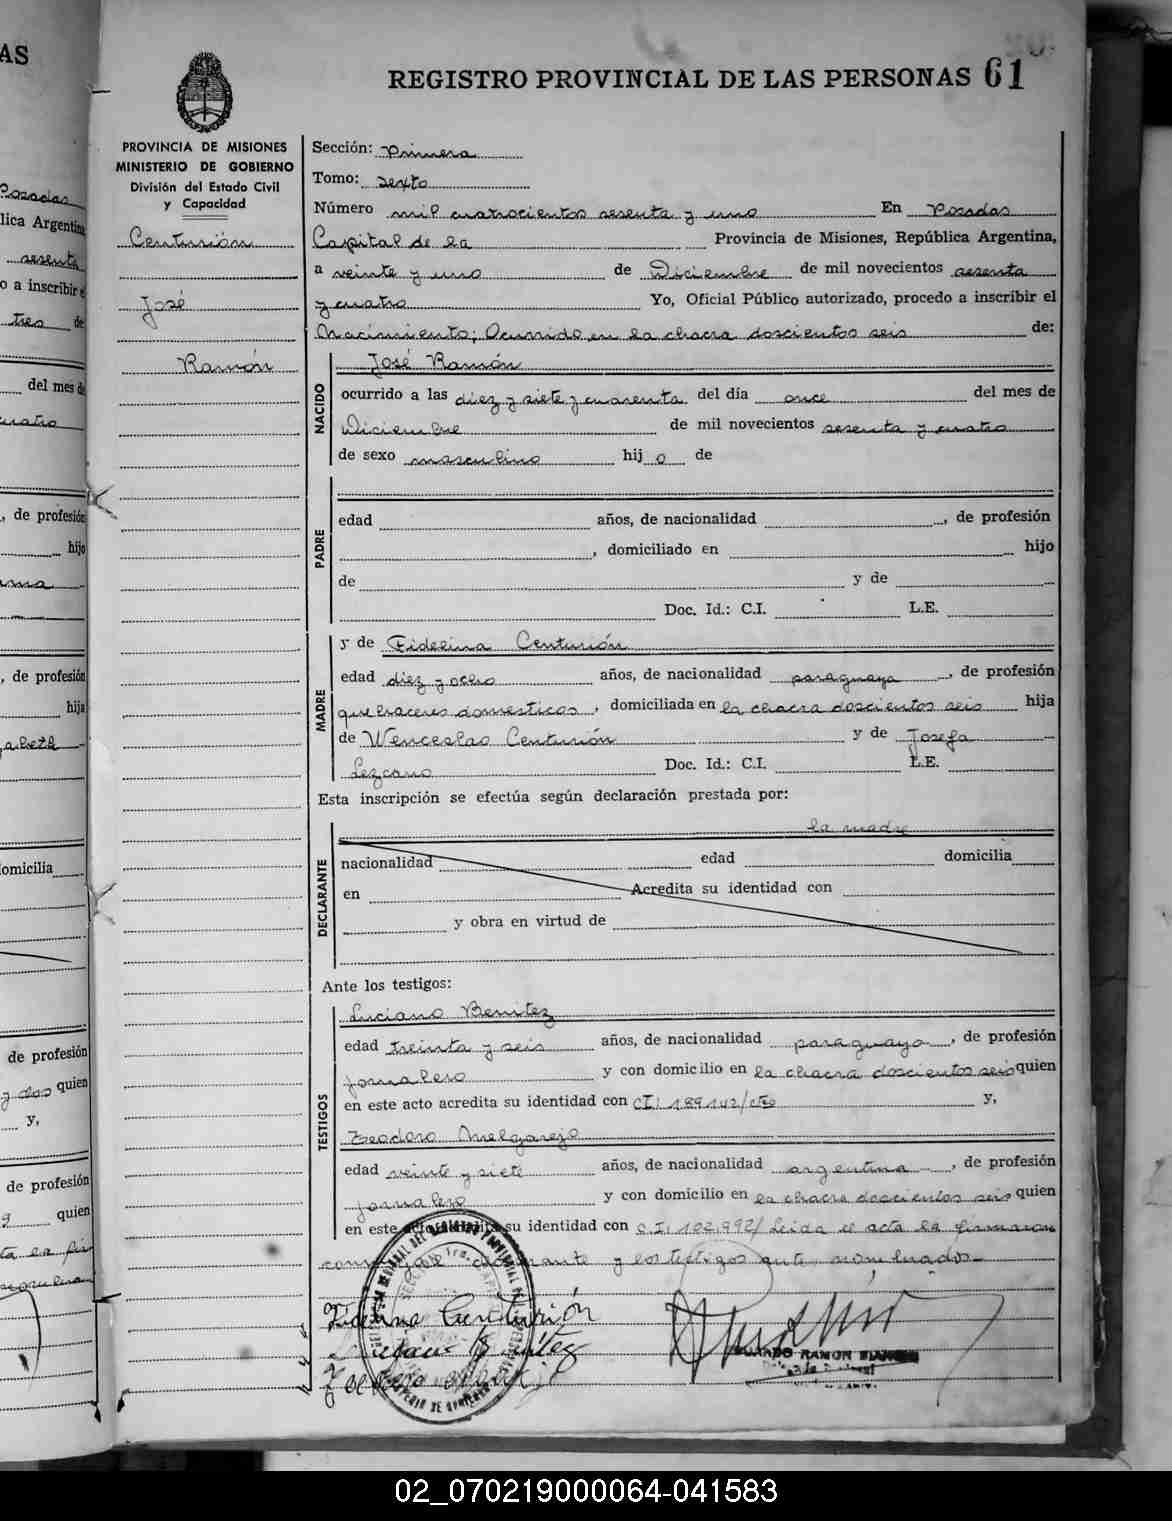 REGISTRO PROVINCIAL DE LAS PERSONAS 61
PROVINCIA DE MISIONES
MINISTERIO DE GOBIERNO
División del Estado Civil
y Capacidad
Centurión
José
Ramón
Sección: Primera
Tomo: sexto
Número mil cuatrocientos sesenta y uno En Posadas
Capital de la Provincia de Misiones, República Argentina,
a veinte y uno de Diciembre de mil novecientos sesenta
y cuatro Yo, Oficial Público autorizado, procedo a inscribir el
Nacimiento; Ocurrido en la chacra doscientos seis de:
NACIDO
José Ramón
ocurrido a las diez y siete y cuarenta del día once del mes de
Diciembre de mil novecientos sesenta y cuatro
de sexo masculino hij o de
PADRE
edad años, de nacionalidad , de profesión
, domiciliado en hijo
de y de
Doc. Id.: C.I. L.E.
MADRE
y de Fidelina Centurión
edad diez y ocho años, de nacionalidad paraguaya , de profesión
quehaceres domesticos , domiciliada en la chacra doscientos seis hija
de Wenceslao Centurión y de Josefa
Lezcano Doc. Id.: C.I. L.E.
Esta inscripción se efectúa según declaración prestada por:
la madre
DECLARANTE
nacionalidad edad domicilia
en Acredita su identidad con
y obra en virtud de
Ante los testigos:
TESTIGOS
Luciano Benitez
edad treinta y seis años, de nacionalidad paraguaya , de profesión
jornalero y con domicilio en la chacra doscientos seis quien
en este acto acredita su identidad con CI: 189142/cte y,
Teodoro Melgarejo
edad veinte y siete años, de nacionalidad argentina , de profesión
jornalero y con domicilio en la chacra doscientos seis quien
en este su identidad con C.I. 102.992/ Leida el acta la firmaron
y los testigos ante nombrados.-
Fidelina Centurión
RAMON
02_070219000064-041583